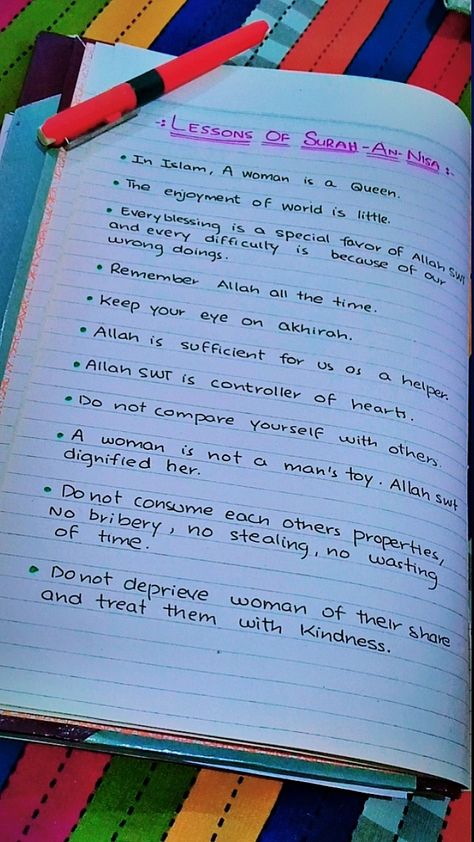 -: LESSONS OF SURAH-AN-NISA :-
• In Islam, A woman is a Queen.
• The enjoyment of world is little.
• Every blessing is a special favor of Allah swt
and every difficulty is because of our
wrong doings.
• Remember Allah all the time.
• Keep your eye on akhirah.
• Allah is sufficient for us as a helper.
• Allah swt is controller of hearts.
• Do not compare yourself with others.
• A woman is not a man's toy. Allah swt
dignified her.
• Do not consume each others properties,
No bribery, no stealing, no wasting
of time.
• Do not deprieve woman of their share
and treat them with kindness.